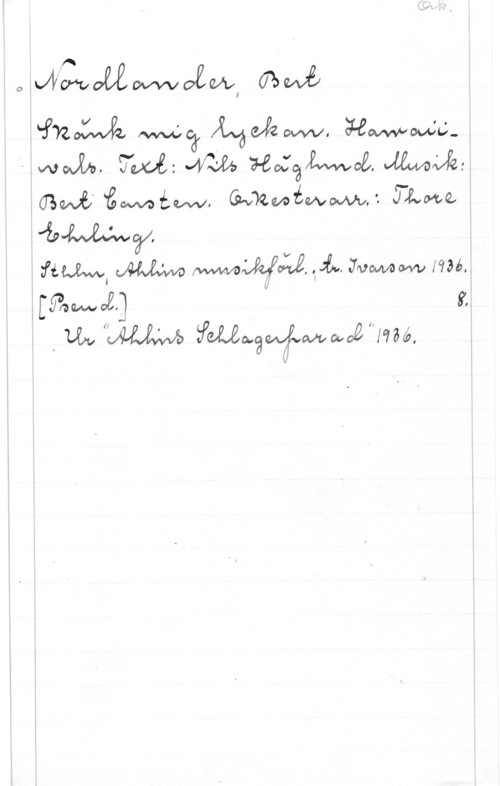 Ork.
Nordlander, Bert
Skänk mig lyckan. Hawaii-
vals. Text: Nils Häglund. Musik:
Bert Carsten. Orkesterarr.: Thore
Ehrling.
Sthlm, Ahlins musikförl., tr. Ivarson 1936.
[Pseud.] 8.
Ur "Ahlins Schlagerparad" 1936.